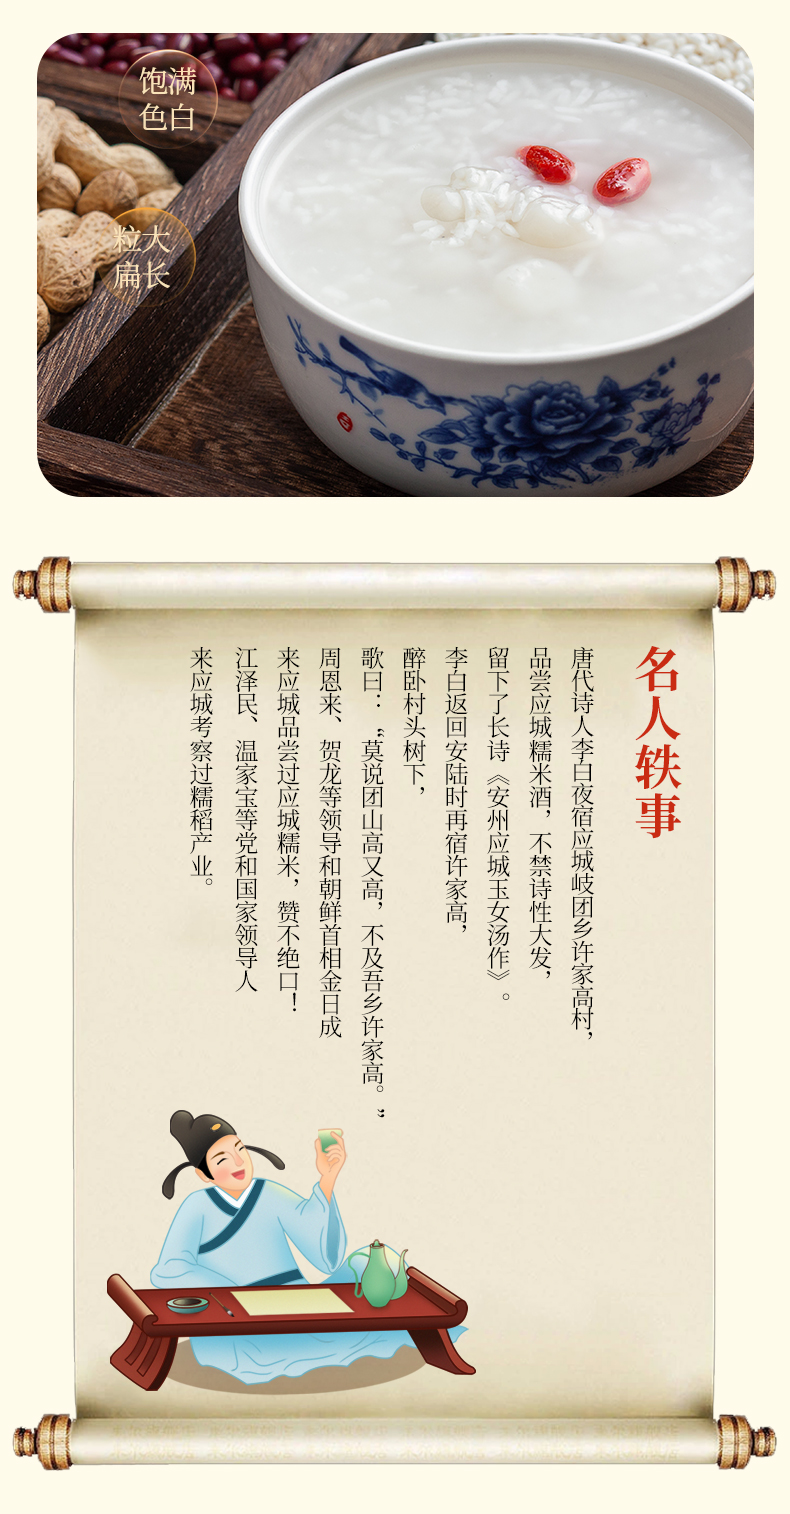 饱满
色白
粒大
扁长
名人轶事
唐代诗人李白夜宿应城岐团乡许家高村，
品尝应城糯米酒，不禁诗性大发，
留下了长诗《安州应城玉女汤作》。
李白返回安陆时再宿许家高，
醉卧村头树下，
歌曰：“莫说团山高又高，不及吾乡许家高。”
周恩来、贺龙等领导和朝鲜首相金日成
来应城品尝过应城糯米，赞不绝口！
江泽民、温家宝等党和国家领导人
来应城考察过糯稻产业。